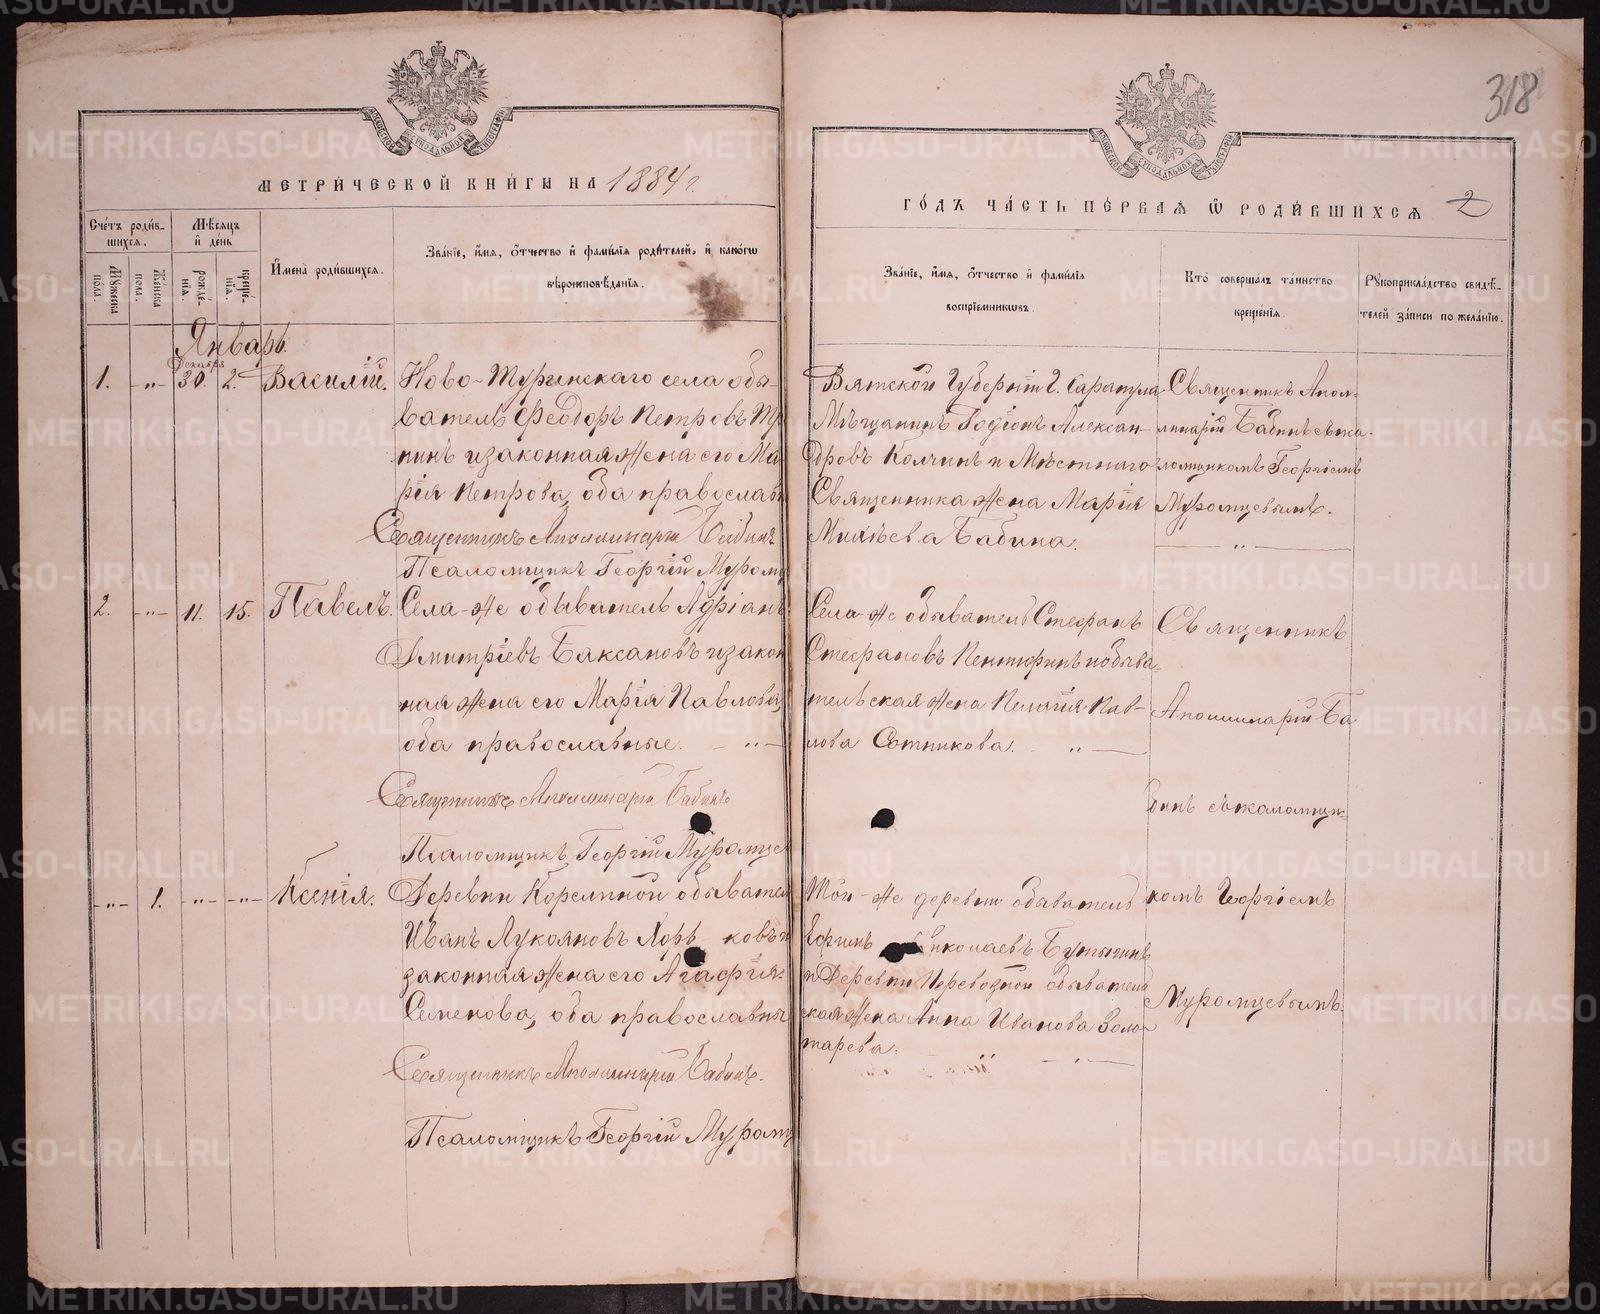 318
МЕТРИЧЕСКОЙ КНИГИ НА 1884 г.
Счетъ родившихся.
Мѣсяцъ и день
Мужеска пола.
Женска пола.
рожденія.
крещенія.
Имена родившихся.
Званіе, имя, отчество и фамилія родителей, и какого вѣроисповѣданія.
Январь.
Декабря
1. -„- 30 2. Василій.
Ново-Туринскаго села обы-
ватель Феодоръ Петровъ
и законная жена его Ма
рія Петрова, оба православ
Священникъ Аполлинарій Бабинъ
Псаломщикъ Георгій Муромц
2. -„- 11. 15. Павелъ.
Села-же обыватель Адріанъ
Дмитріевъ Баксановъ и закон
ная жена его Марія Павлова,
оба православные.
Священникъ Аполлинарій Бабинъ
Псаломщикъ Георгій Муромце
-„- 1. -„- -„- Ксенія.
Деревни Корелиной обывател
Иванъ Лукояновъ ковъ и
законная жена его Агафія
Семенова, оба православны
Священникъ Аполлинарій Бабинъ.
Псаломщикъ Георгій Муромц
ГОДЪ ЧАСТЬ ПЕРВАЯ Ѡ РОДИВШИХСЯ 2
Званіе, имя, отчество и фамилія воспріемниковъ.
Кто совершалъ таинство крещенія.
Рукоприкладство свидѣтелей записи по желанію.
Вятской Губерніи Г. Сарапула
Мѣщанинъ Родіонъ Алексан-
дровъ Колчинъ и Мѣстнаго
Священника жена Марія
Михѣева Бабина.
Священникъ Апол-
линарій Бабинъ съ пса-
ломщикомъ Георгіемъ
Муромцевымъ.
Села-же обыватель Стефанъ
Стефановъ Пентюринъ и обыва-
тельская жена Пелагія Пав-
лова Сотникова.
Священникъ
Аполлинарій Ба
бинъ съ псаломщи-
комъ Георгіемъ
Муромцевымъ.
Той-же деревни обыватель
Ефимъ Николаевъ
и Деревни Переводной обыватель
ская жена Анна Иванова Золо-
тарева.
METRIKI.GASO-URAL.RU